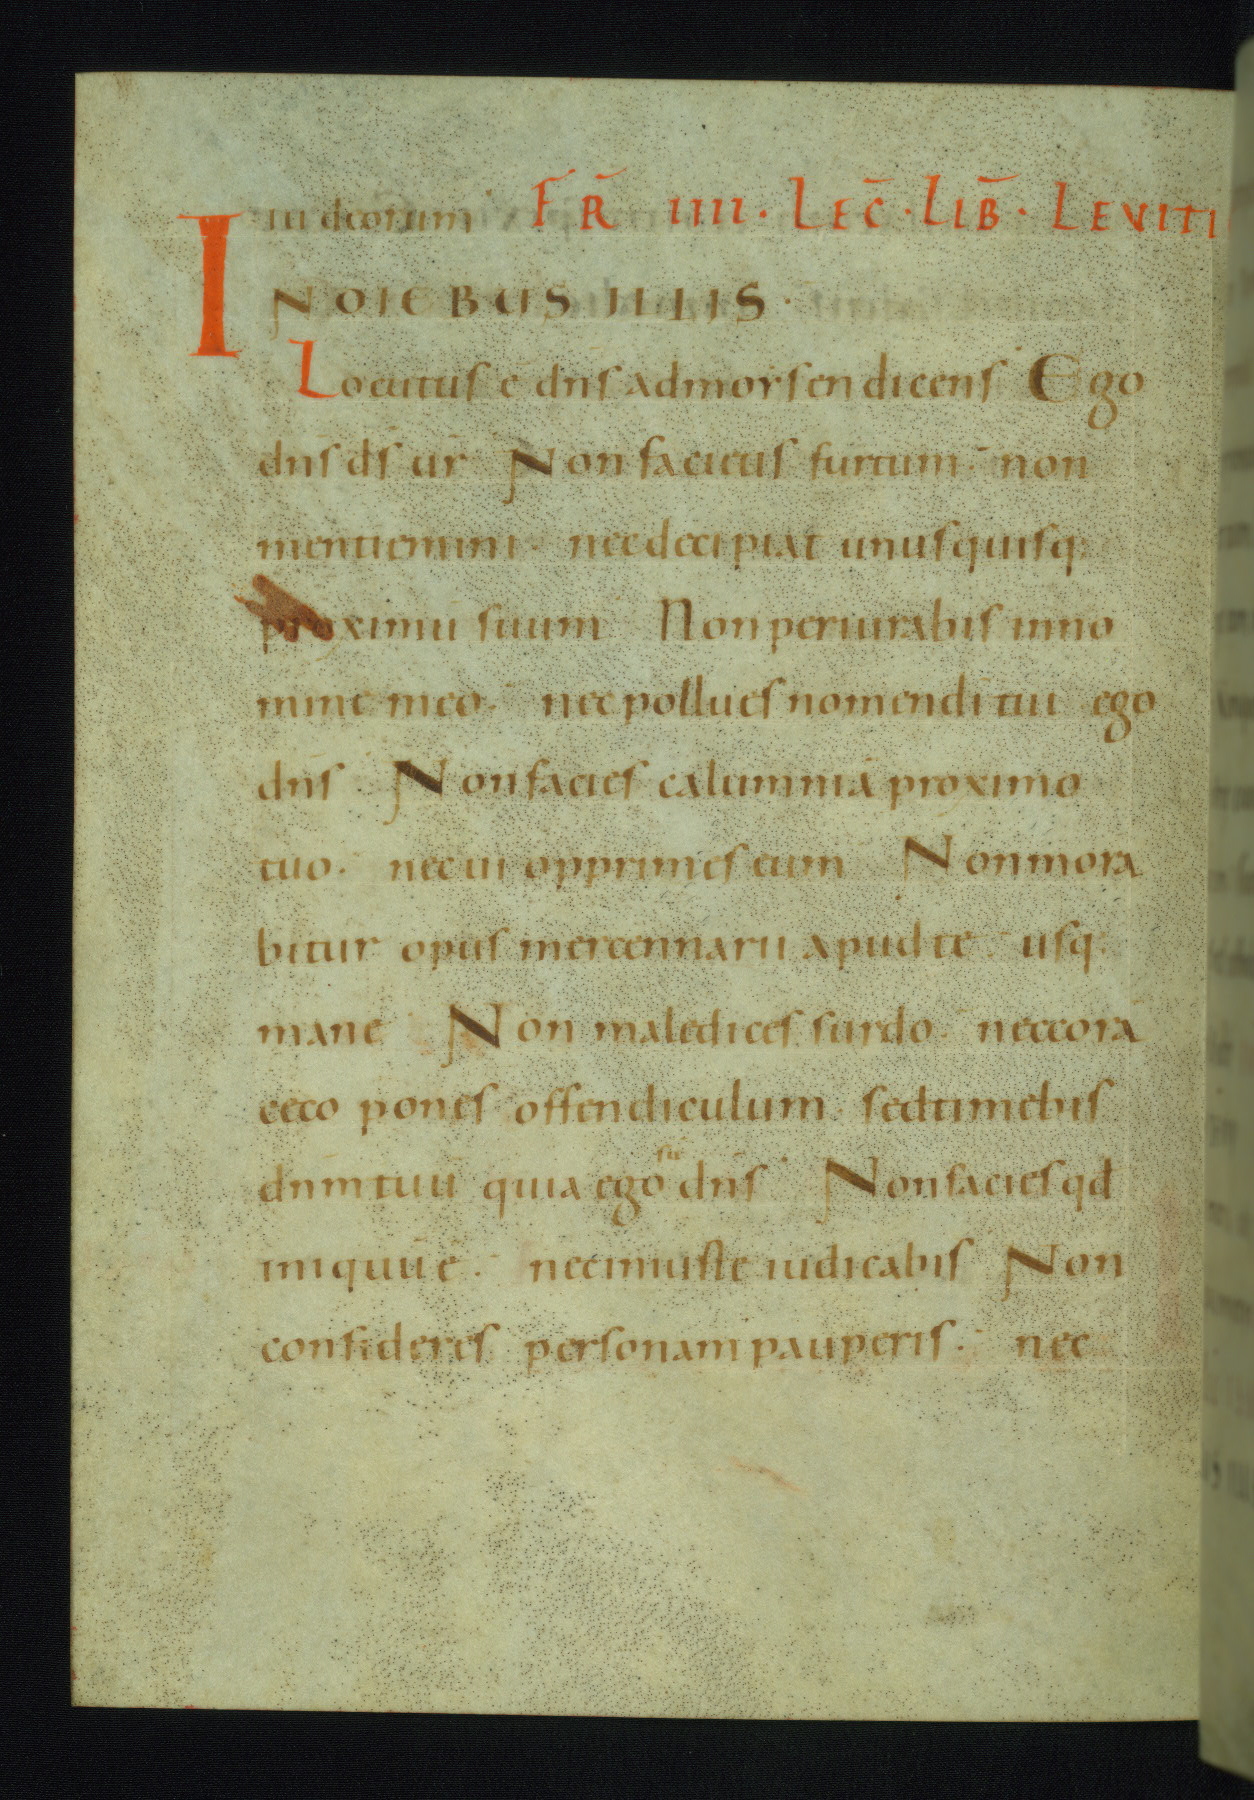 iudeorum FR̄ IIII · LEC̄ · LIB̄ · LEVITI
IN DIEBUS ILLIS ·
Locutus ē dn̄s ad morsen dicens Ego
dn̄s d̄s ur̄ Non facietis furtum · non
mentiemini · nec decipiat unusquisq:
proximū suum Non periurabis in no
mine meo · nec pollues nomen di tui ego
dn̄s · Non facies calumniā proximo
tuo · nec ui opprimes eum Non mora
bitur opus mercennarii apud te usq:
mane Non maledices surdo · nec cora
ceco pones offendiculum sed timebis
dnm̄ tuū quia ego sū dn̄s Non facies qd
iniquū ē · nec iniuste iudicabis Non
consideres personam pauperis · nec